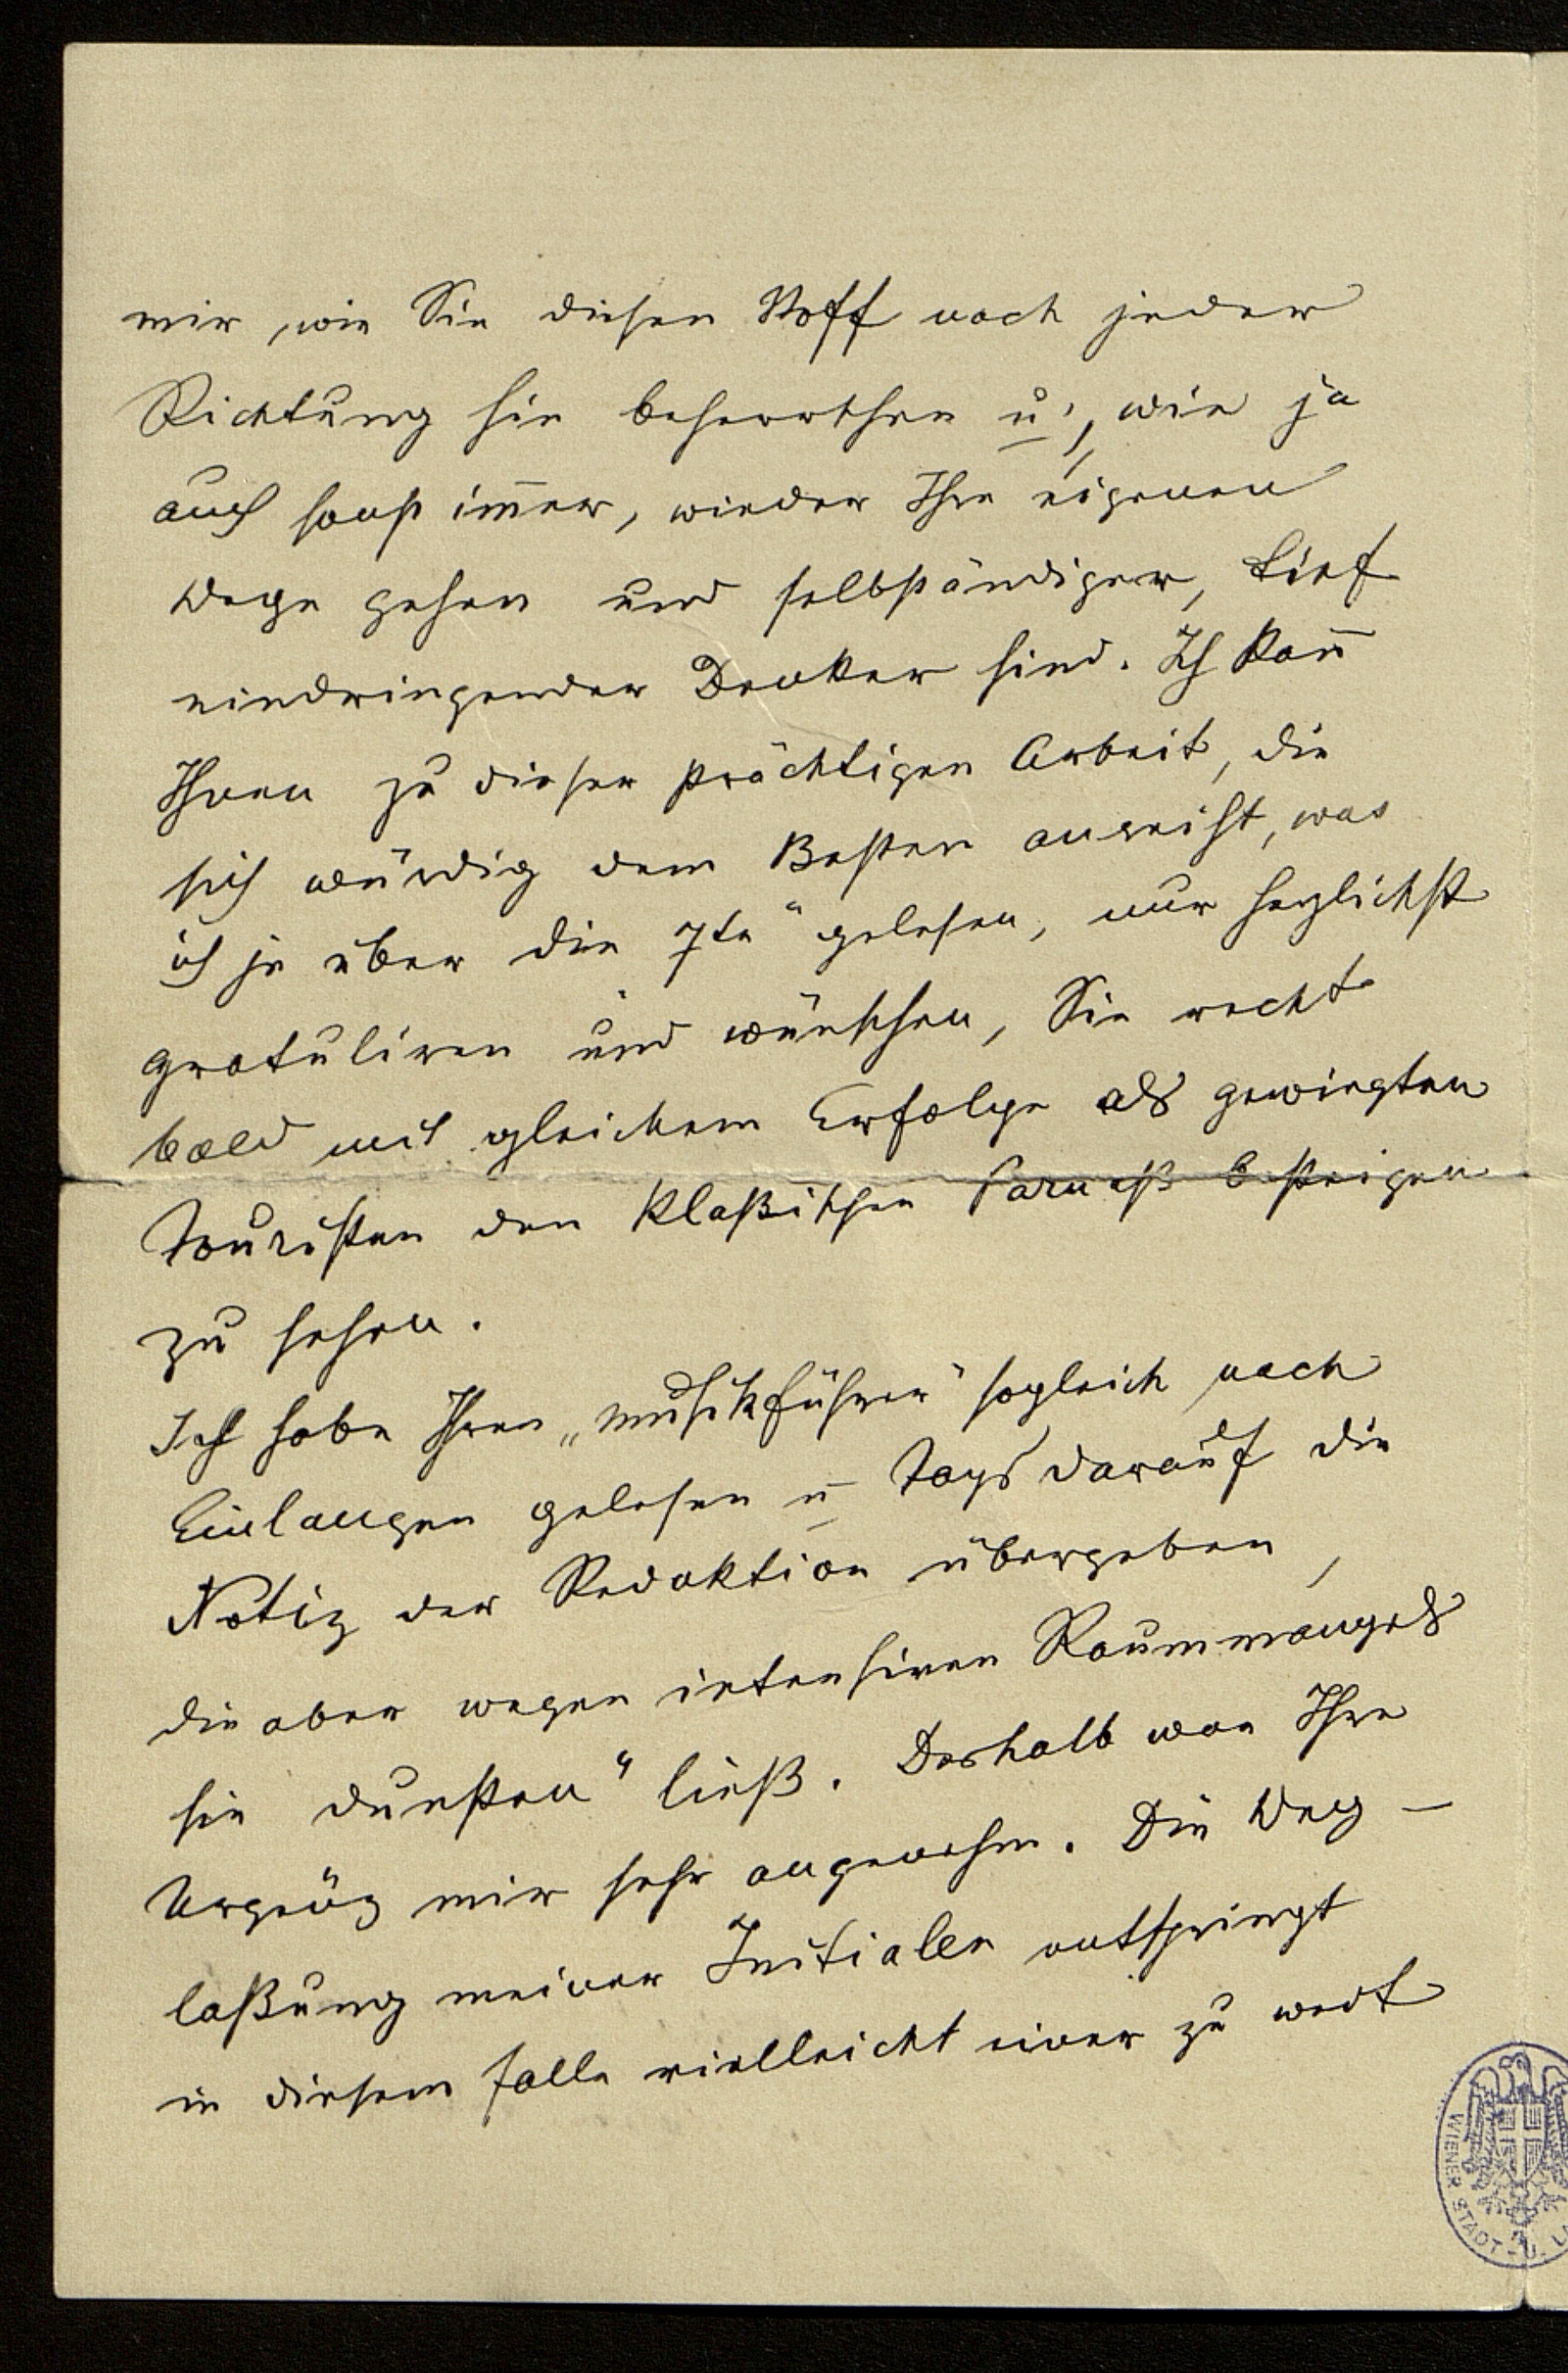 mir, wie Sie diesen Stoff nach jeder
Richtung hin beherrschen u., wie ja
auch sonst im̄er, wieder Ihre eigenen
Wege gehen und selbständiger, tief
eindringender Denker sind. Ich kan̄
Ihnen zu dieser prächtigen Arbeit, die
sich würdig dem Besten anreiht, was
ich je über die „7te“ gelesen, nur herzlichst
gratuliren und wünschen, Sie recht
bald mit gleichem Erfolge als gewiegten
Touristen den klaßischen Parnaß besteigen
zu sehen.
Ich habe Ihren „Musikführer“ sogleich nach
Einlangen gelesen u Tags darauf die
Notiz der Redaktion übergeben,
die aber wegen intensiven Raummangels
sie dunsten“ ließ. Deshalb war Ihre
mir sehr angenehm. Die Weg-
laßung meiner Initialen entspringt
in diesem Falle vielleicht einer zu
WIENER STADT- U. L